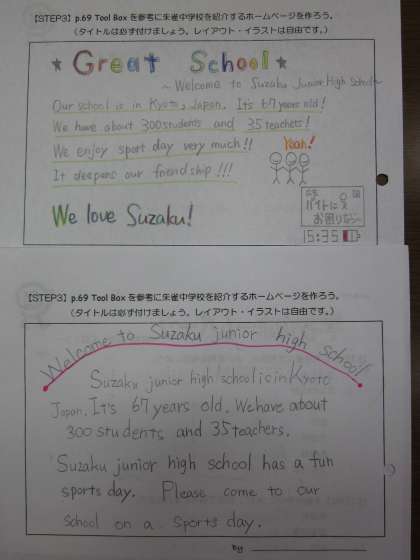 【STEP3】p.69 Tool Box を参考に朱雀中学校を紹介するホームページを作ろう。
（タイトルは必ず付けましょう。レイアウト・イラストは自由です。）
★ Great School ★
~Welcome to Suzaku Junior High School~
Our school is in Kyoto, Japan. It's 67 years old!
We have about 300 students and 35 teachers!
We enjoy sport day very much!!
Yeah!
It deepens our friendship!!!
We love Suzaku!
バイトに
お困りなら~
15:35
【STEP3】p.69 Tool Box を参考に朱雀中学校を紹介するホームページを作ろう。
（タイトルは必ず付けましょう。レイアウト・イラストは自由です。）
Welcome to Suzaku junior high school
Suzaku junior high school is in Kyoto
Japan. It's 67 years old. We have about
300 students and 35 teachers.
Suzaku junior high school has a fun
sports day. Please come to our
school on a sports day.
by